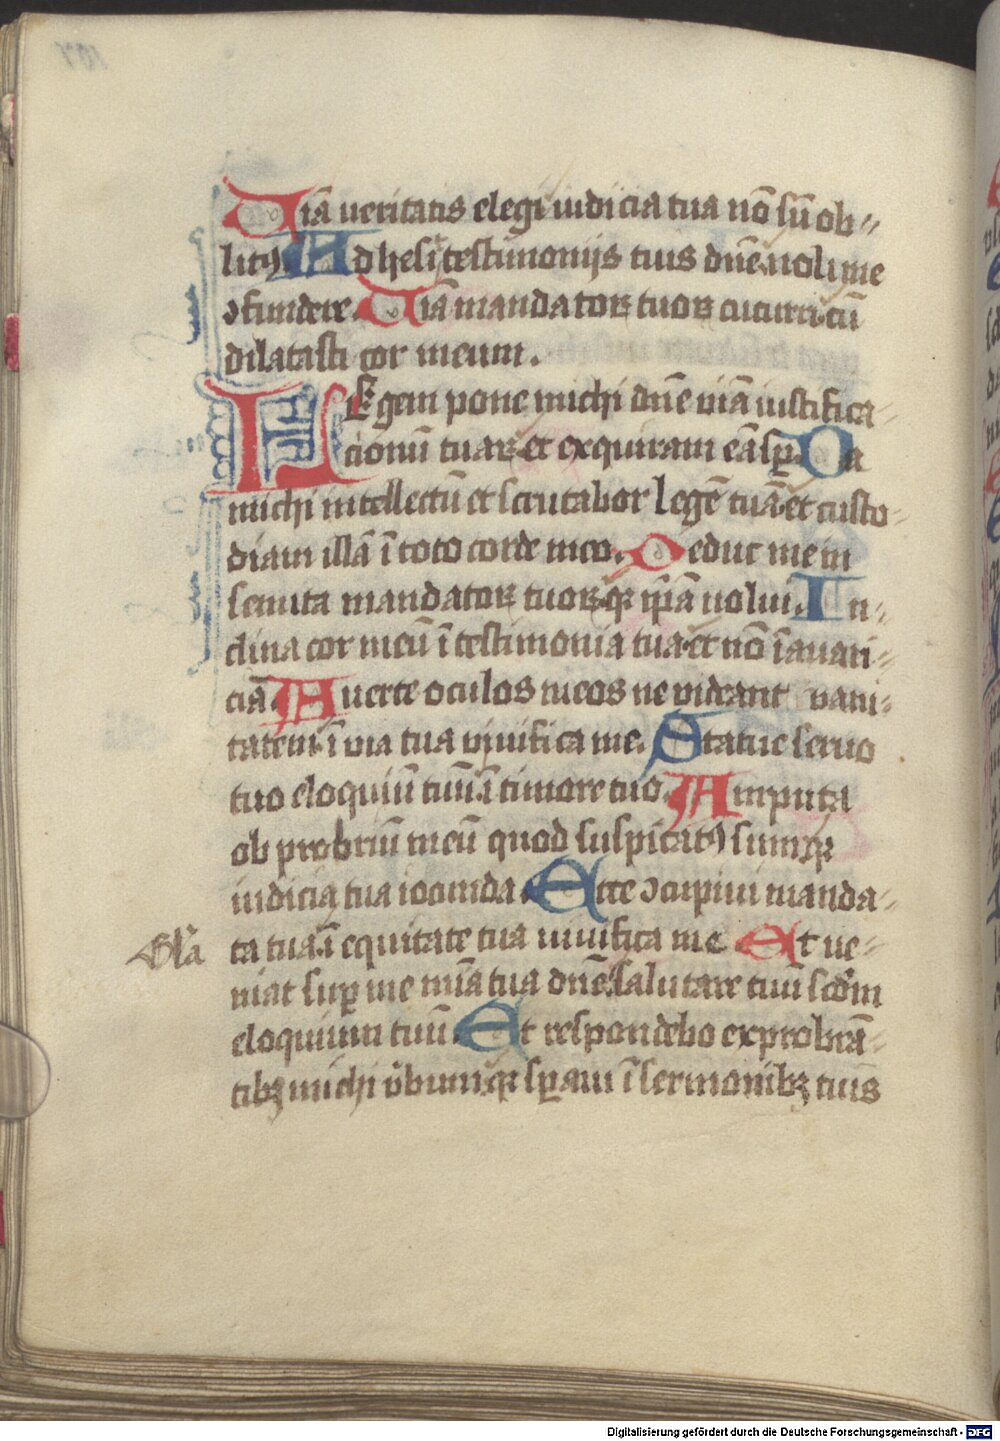 Viā veritatis elegi iudicia tua nō sū ob⸗
litꝰ Adhesi testimonijs tuis dn̄e noli me
ꝯfundere Viā mandatoꝝ tuoꝝ cucurri cū
dilatasti cor meum.
LEgem pone michi dn̄e viā iustifica⸗
cionū tuaꝝ et exquiram eā sꝑ Da
michi intellectū et scrutabor legē tuā et custo⸗
diam illā ī toto corde meo. Deduc me in
semita mandatoꝝ tuoꝝ qꝛ ip̄ā volui. In⸗
clina cor meū ī testimonia tua et nō ī auari⸗
ciā Auerte oculos meos ne videant vani⸗
tatem ī via tua viuifica me. Statue seruo
tuo eloquiū tuū ī timore tuo Amputa
obprobriū meū quod suspicatꝰ sum qꝛ
iudicia tua iocunda Ecce ꝯcupiui manda⸗
ta tua ī equitate tua viuifica me Et ve⸗
niat suꝑ me mīa tua dn̄e salutare tuū scd̄m
eloquium tuū Et respondebo exprobrā⸗
tibꝫ michi v̄bum qꝛ sꝑaui ī sermonibꝫ tuis
Gl̄a
Digitalisierung gefördert durch die Deutsche Forschungsgemeinschaft - DFG